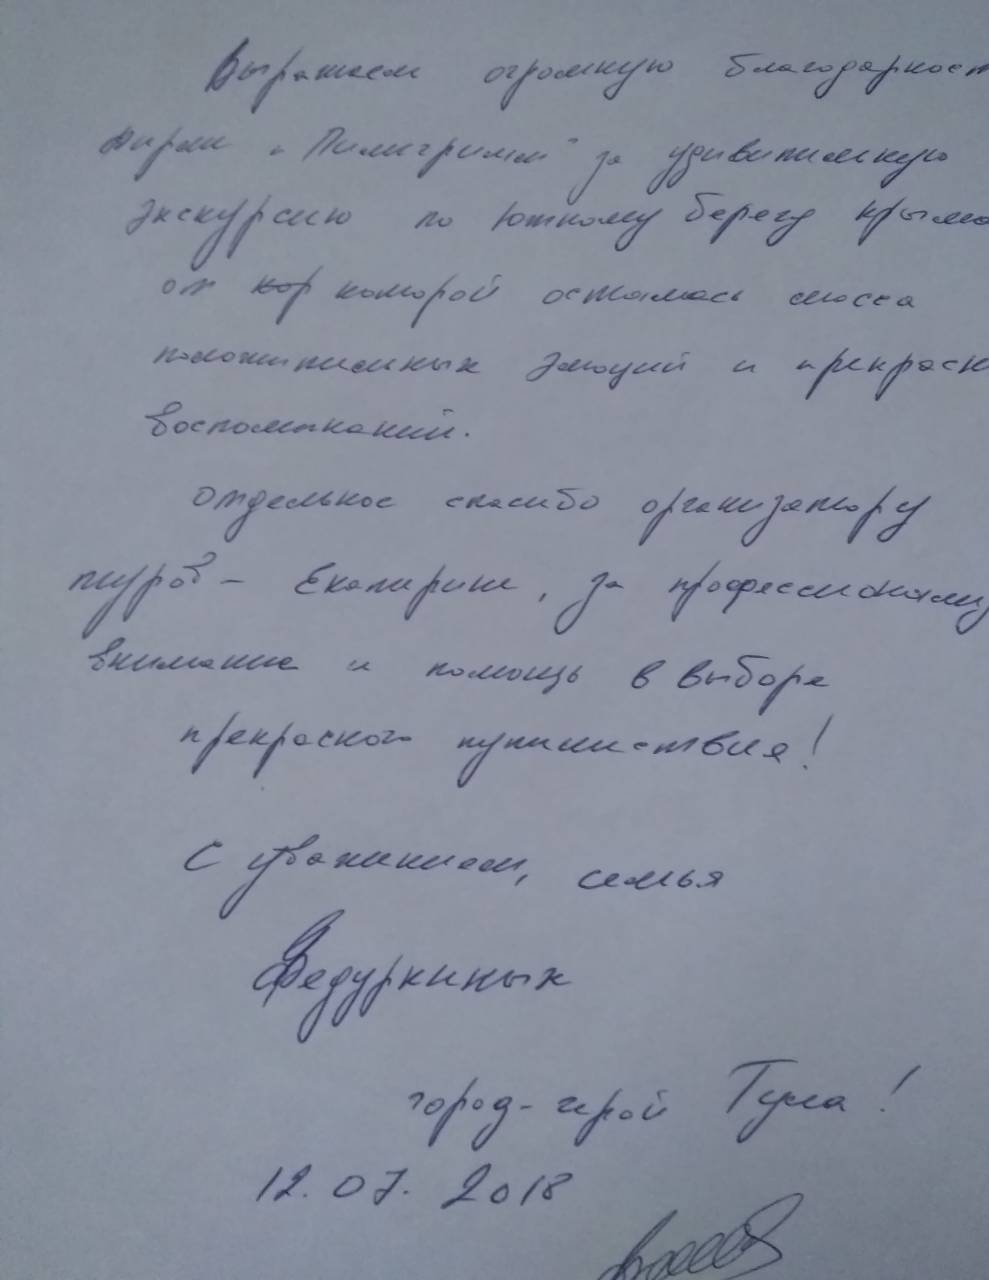 Выражаем огромную благодарност
фирме "Пилигрим" за удивительную
экскурсию по Южному берегу Крыма
от кор которой осталась масса
положительных эмоций и прекрасн
воспоминаний.
Отдельное спасибо организатору
туров - Екатерине, за профессионализ
внимание и помощь в выборе
прекрасного путешествия!
С уважением, семья
Федуркиных
город-герой Тула!
12.07.2018